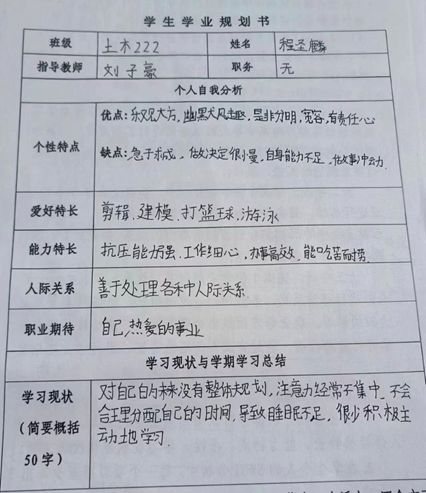 学生学业规划书
班级 土木222 姓名 程圣麟
指导教师 刘子豪 职务 无
个人自我分析
优点：乐观大方，幽默风趣，是非分明，宽容，有责任心
个性特点
缺点：急于求成，做决定很慢，自身能力不足，做事冲动
爱好特长 剪辑、建模、打篮球、游泳
能力特长 抗压能力强、工作细心，办事高效、能吃苦耐劳
人际关系 善于处理各种人际关系
职业期待 自己热爱的事业
学习现状与学期学习总结
学习现状 对自己的未来没有整体规划，注意力经常不集中，不会
（简要概括 合理分配自己的时间，导致睡眠不足，很少积极主
50字） 动地学习.